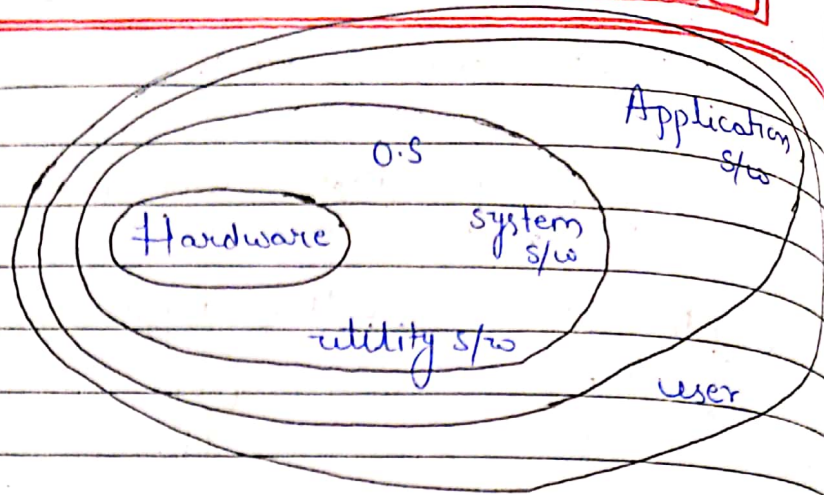 Application
S/w
O.S
Hardware
system
S/w
utility S/w
user